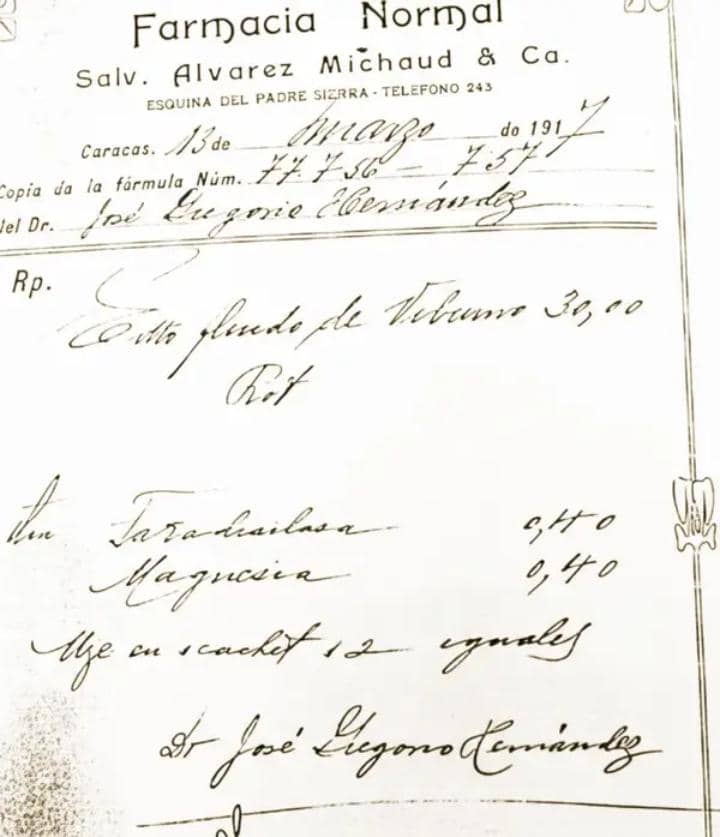 Farmacia Normal
Salv. Alvarez Michaud & Ca.
ESQUINA DEL PADRE SIERRA - TELEFONO 243
Caracas. 13 de marzo do 1917
Copia da la fórmula Núm. 77.756 - 757
del Dr. José Gregorio Hernández
Rp.
fluido de Viburno 30,00
Rót
0,40
Magnesia 0,40
en cachet 12 iguales
Dr José Gregorio Hernández